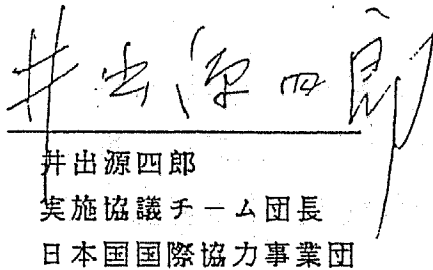 井出源四郎
井出源四郎
実施協議チーム団長
日本国国際協力事業団